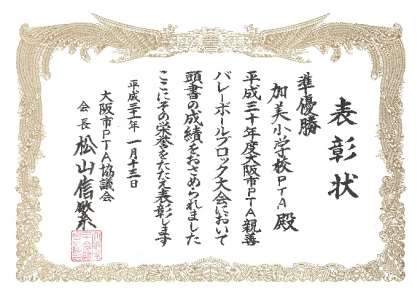 表彰状
準優勝
加美小学校PTA殿
平成三十年度大阪市PTA親善
バレーボールブロック大会において
頭書の成績をおさめられました
ここにその栄誉をたたえ表彰します
平成三十一年一月十三日
大阪市PTA協議会
会長 松山信繁